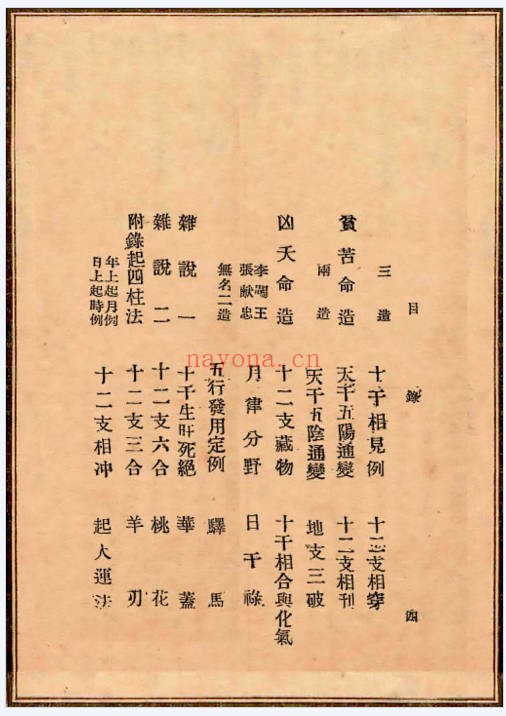 目錄 四
三造
貧苦命造
兩造
凶夭命造
李闖王
張獻忠
無名二造
雜說一
雜說二
附錄起四柱法
年上起月例
日上起時例
十干相見例
天干五陽通變
天干五陰通變
十二支藏物
月律分野
五行發用定例
十干生旺死絕
十二支六合
十二支三合
十二支相冲
十二支相穿
十二支相刑
地支三破
十干相合與化氣
日干祿
驛馬
華蓋
桃花
羊刃
起大運法
nayona.cn